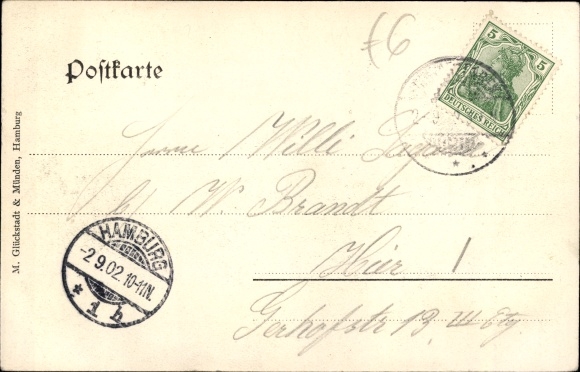 Postkarte
M. Glückstadt & Münden, Hamburg
5 5
DEUTSCHES REICH
Herrn Willi
W. Brandt
Hier
Gerhofstr 13 III Etg
HAMBURG
-2.9.02. 10-11N.
* 1 h